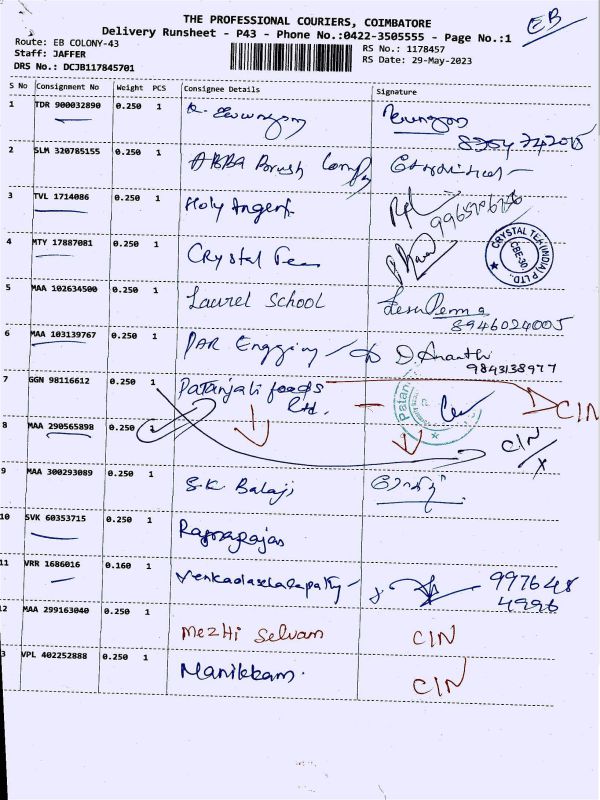 THE PROFESSIONAL COURIERS, COIMBATORE
EB
Delivery Runsheet - P43 - Phone No.:0422-3505555 - Page No.:1
Route: EB COLONY-43
RS No.: 1178457
Staff: JAFFER
RS Date: 29-May-2023
DRS No.: DCJB117845701
S No Consignment No Weight PCS Consignee Details Signature
1 TDR 900032890 0.250 1
2 SLM 320785155 0.250 1 ABBA Borush
3 TVL 1714086 0.250 1 Holy Angent
4 MTY 17887081 0.250 1 Crystal Tee
CRYSTAL TEK(INDIA) P LTD.
CBE-30
5 MAA 102634500 0.250 1 Laurel School
8946024005
6 MAA 103139767 0.250 1 PAR D Ananthi
9843138977
7 GGN 98116612 0.250 1 Patanjali foods CIN
Ltd. Patan
8 MAA 290565898 0.250 CIN
9 MAA 300293089 0.250 1 S.K Balaji
10 SVK 60353715 0.250 1
11 VRR 1686016 0.160 1 997648
4996
12 MAA 299163040 0.250 1 Mezhi Selvam CIN
3 VPL 402252888 0.250 1 Manikkam. CIN